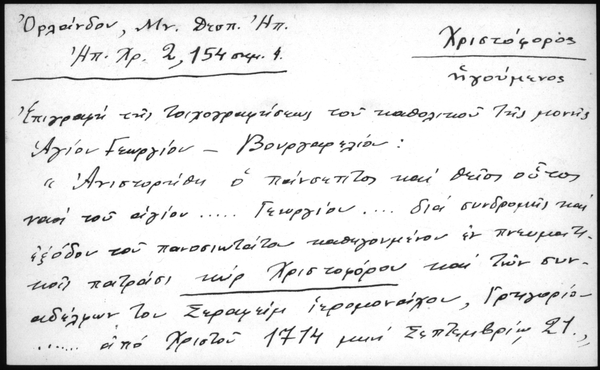 Ὀρλάνδου, Μν. Δεσπ. Ἠπ.
Ἠπ. Χρ. 2, 154 σημ. 1.
Χριστόφορος
ἡγούμενος
Ἐπιγραφή τῆς τοιχογραφήσεως τοῦ καθολικοῦ τῆς μονῆς
Ἁγίου Γεωργίου – Βουργαρελίου :
" Ἀνιστορήθη ὁ πάνσεπτος καί θεῖος οὗτος
ναός τοῦ ἁγίου ..... Γεωργίου .... διά συνδρομῆς καί
ἐξόδου τοῦ πανοσιωτάτου καθηγουμένου ἐν πνευματι-
κοῖς πατράσι κύρ Χριστοφόρου καί τῶν συν-
αδέλφων του Σεραφείμ ἱερομονάχου, Γρηγορίου
...... ἀπό Χριστοῦ 1714 μηνί Σεπτεμβρίῳ 21.,,